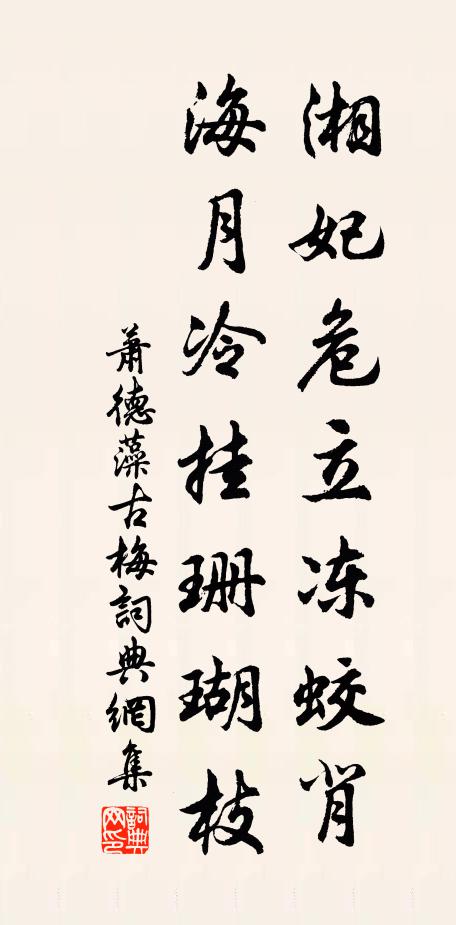 湘妃危立冻蛟背
海月冷挂珊瑚枝
萧德藻古梅詞典網集
詞典网印